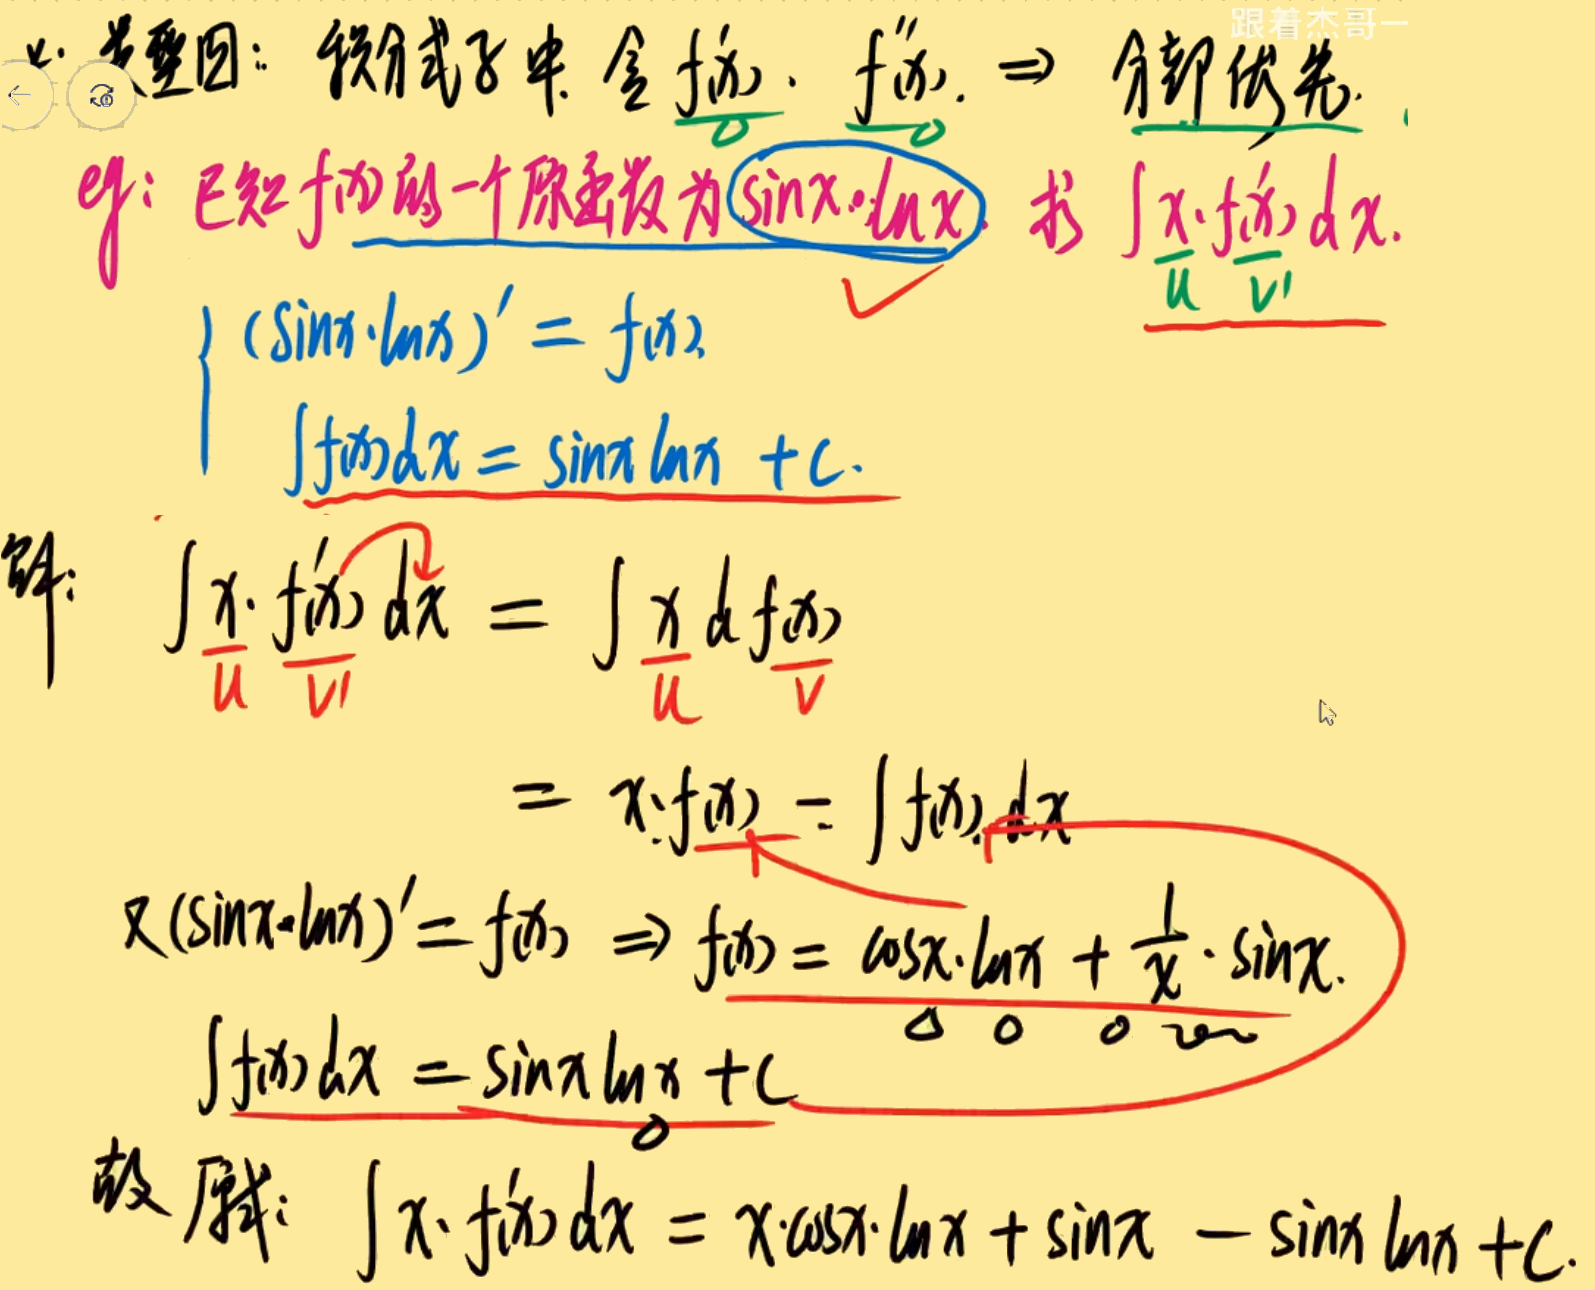 跟着杰哥一
类型四: 积分式子中. 含 f'(x). f''(x). ⇒ 分部优先.
eg: 已知 f(x) 的一个原函数为 sinx·lnx. 求 ∫x·f'(x)dx.
u v'
(sinx·lnx)' = f(x)
∫f(x)dx = sinx lnx + C.
解: ∫x·f'(x)dx = ∫x d f(x)
u v' u v
= x·f(x) - ∫f(x)dx
又(sinx·lnx)' = f(x) ⇒ f(x) = cosx·lnx + 1/x · sinx.
∫f(x)dx = sinx lnx + C
故原式: ∫x·f'(x)dx = x·cosx·lnx + sinx - sinx lnx + C.